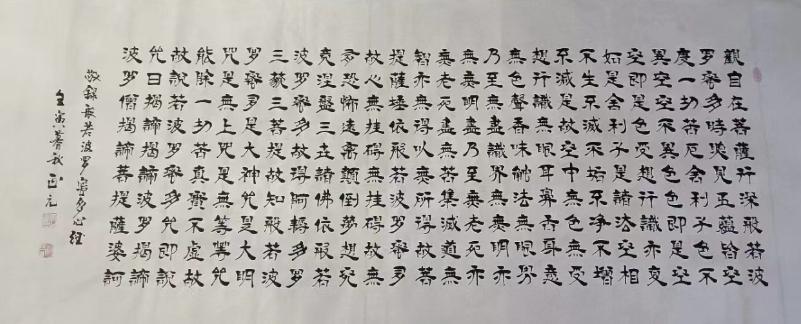 觀自在菩薩行深般若波
罗蜜多時照見五蘊皆空
度一切苦厄舍利子色不
異空空不異色色即是空
空即是色受想行識亦復
如是舍利子是諸法空相
不生不滅不垢不淨不增
不減是故空中無色無受
想行識無眼耳鼻舌身意
無色聲香味觸法無眼界
乃至無意識界無無明亦
無無明盡乃至無老死亦
無老死盡無苦集滅道無
智亦無得以無所得故菩
提薩埵依般若波罗蜜多
故心無挂礙無挂礙故無
有恐怖遠離顛倒夢想究
竟涅盤三世諸佛依般若
波罗蜜多故得阿耨多罗
三藐三菩提故知般若波
罗蜜多是大神咒是大明
咒是無上咒是無等等咒
能除一切苦真實不虛故
故說若波罗蜜多咒即說
咒曰揭諦揭諦波罗揭諦
波罗僧揭諦菩提薩婆訶
敬錄般若波罗蜜多心經
壬寅暮秋